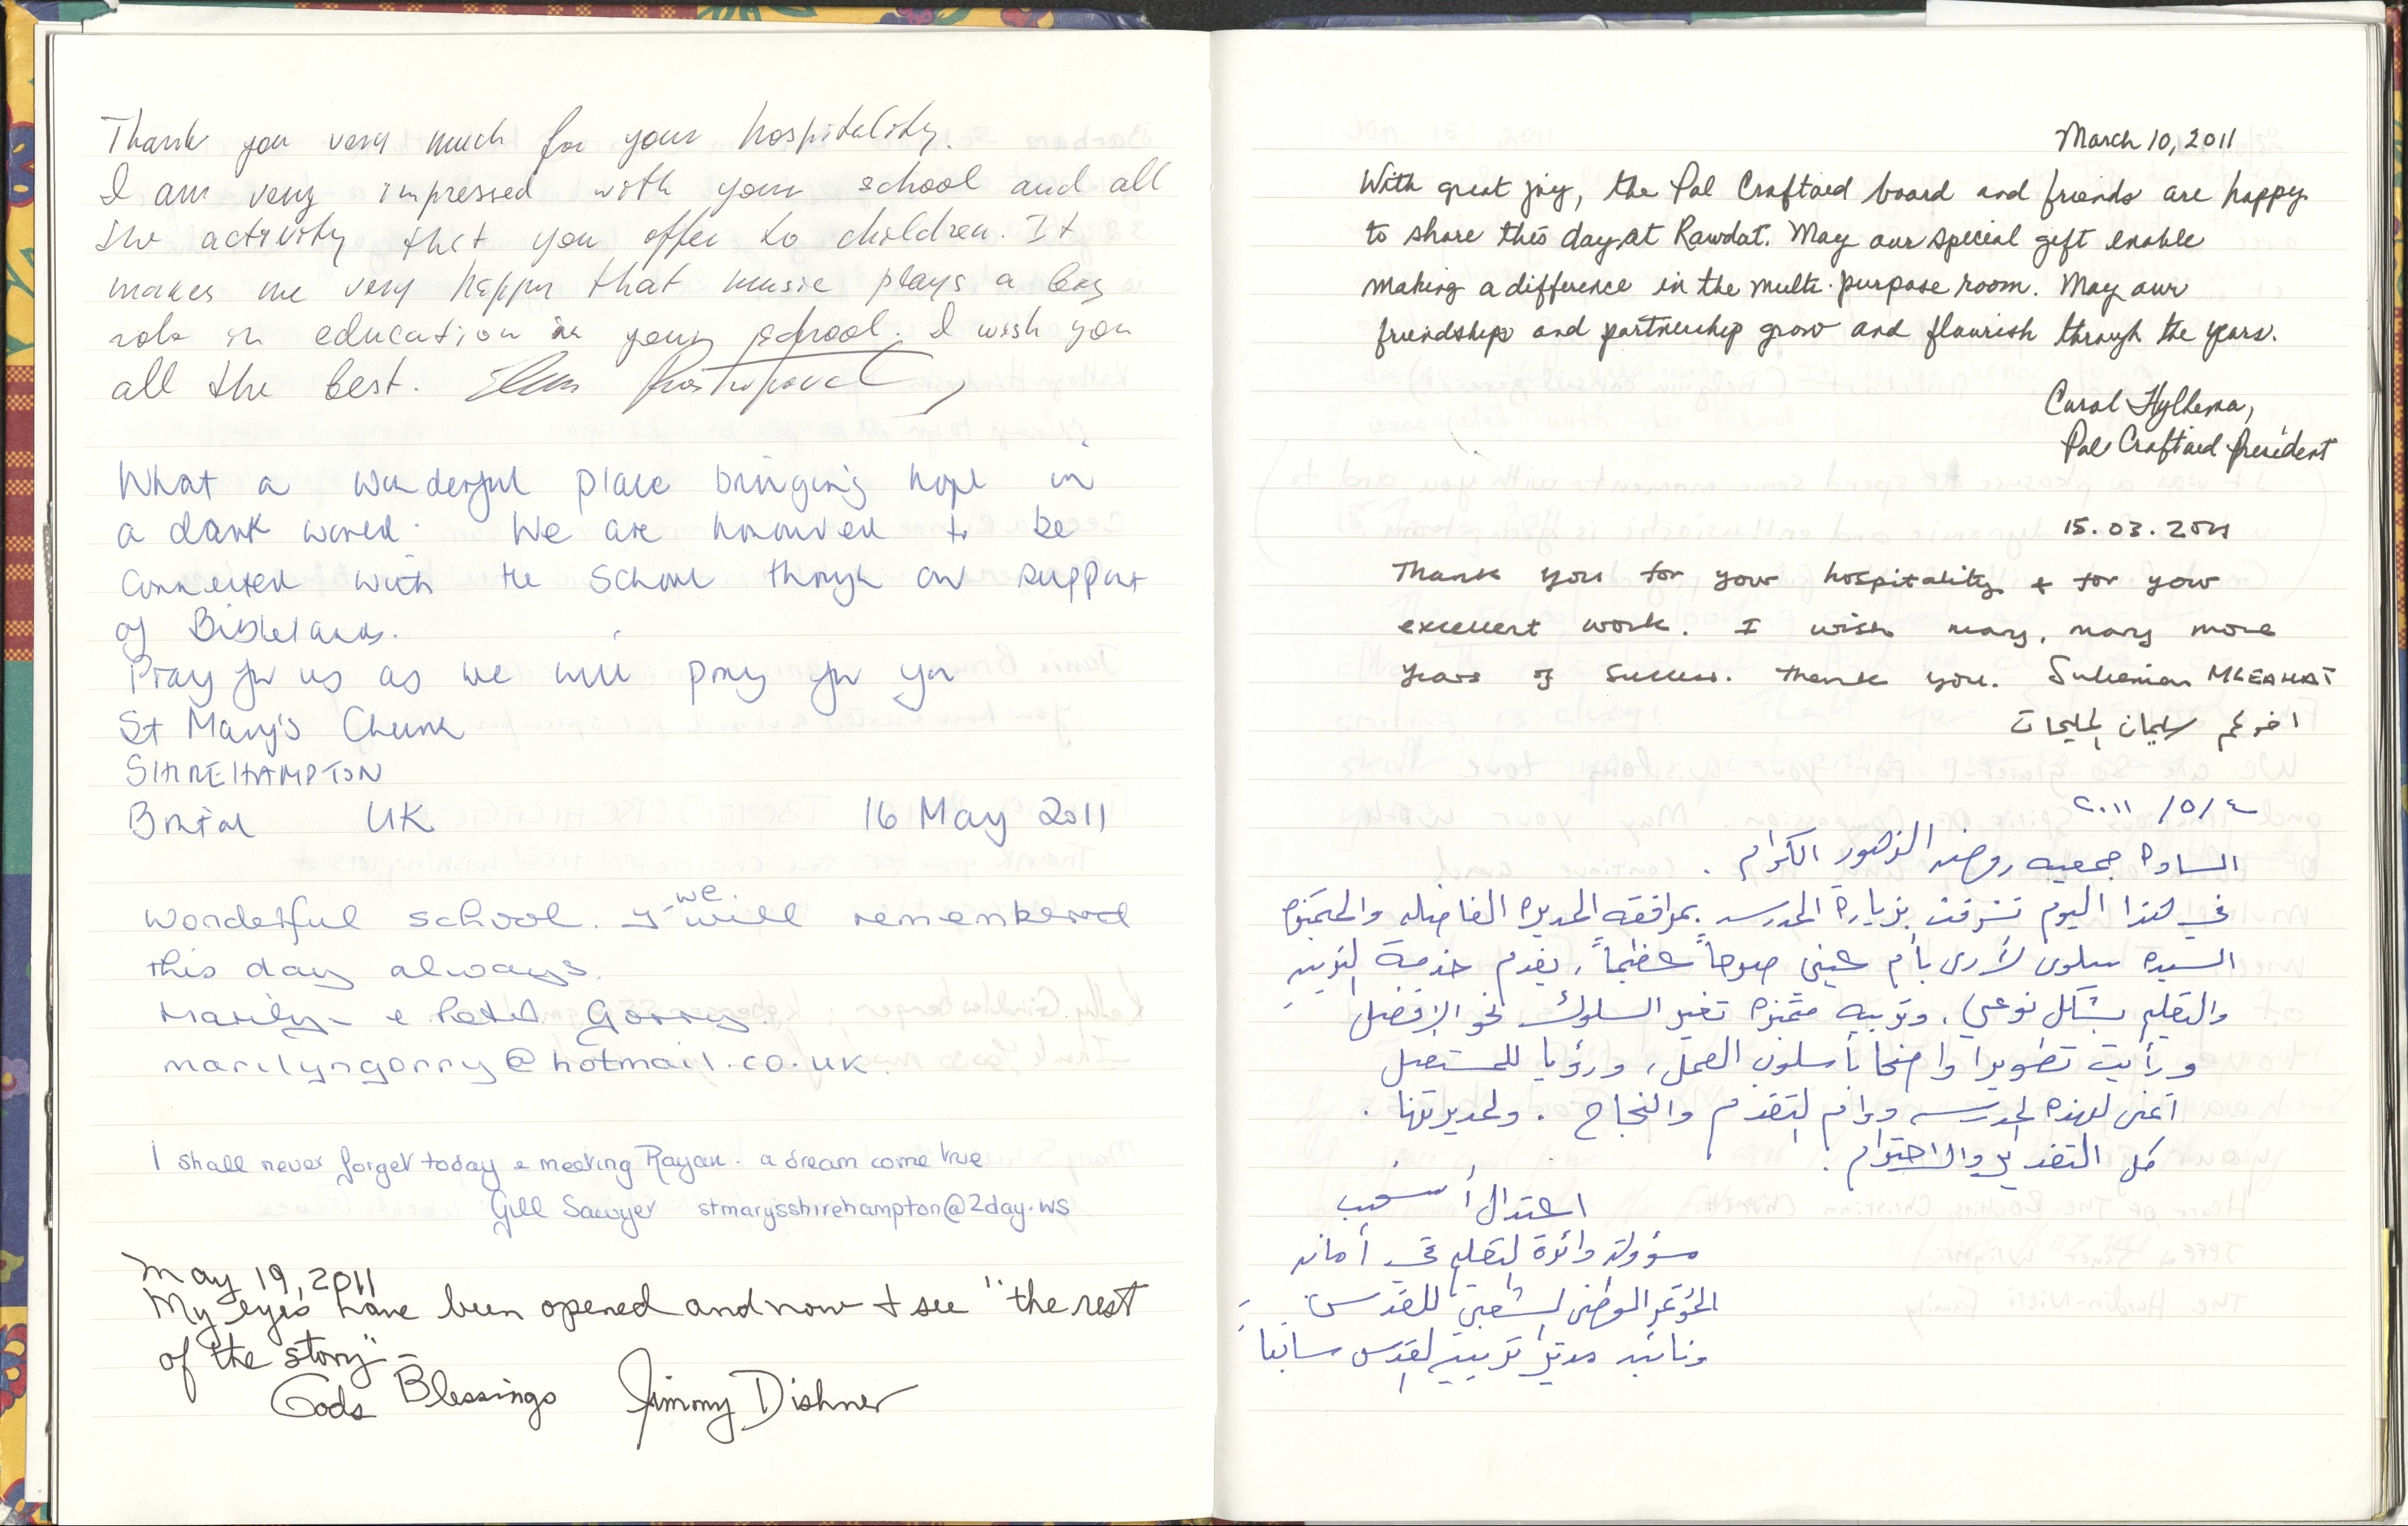 Thank you very much for your hospitality.
I am very impressed with your school and all
the activity that you offer to children. It
makes me very happy that music plays a big
role in education in your school. I wish you
all the best.
What a wonderful place bringing hope in
a dark world. We are honoured to be
connected with the School through our support
of Biblelands.
Pray for us as we will pray for you
St Mary's Church
SHIREHAMPTON
Bristol UK 16 May 2011
wonderful school. we will remembered
this day always.
Marilyn & Peter Gorry.
marilyngorry@hotmail.co.uk.
I shall never forget today & meeting Rayan. a dream come true
Gill Sawyer stmarysshirehampton@2day.ws
May 19, 2011
My eyes have been opened and now I see "the rest
of the story" –
Gods Blessings Jimmy Dishner
March 10, 2011
With great joy, the Pal Craftaid board and friends are happy
to share this day at Rawdat. May our special gift enable
making a difference in the multi-purpose room. May our
friendships and partnership grow and flourish through the years.
Carol Hylkema,
Pal Craftaid President
15.03.2011
Thank you for your hospitality + for your
excellent work. I wish many, many more
years of success. Thank you. Suleiman MLEAHAT
اخوكم سليمان المليحات
٢٠١١ /٥/ ٤
السادة جمعيه روضة الزهور الكرام .
في هذا اليوم تشرفت بزيارة المدرسه بمرافقه المديره الفاضله والمتميزه
السيده سلوى لأرى بأم عيني صرحاً عظيماً، يقدم خدمة التربيه
والتعليم بشكل نوعي، وتربيه متميزه تغير السلوك نحو الافضل
ورأيت تطويرا واضحا بأسلوب العمل، ورؤيا للمستقبل
أتمنى لهذه المدرسه دوام التقدم والنجاح . ولمديرتها .
كل التقدير والاحترام .
اعتدال الأشهب
مسؤولة دائرة التعليم في أمانه
المؤتمر الوطني الشعبي للقدس
ونائبه مدير تربيه القدس سابقاً